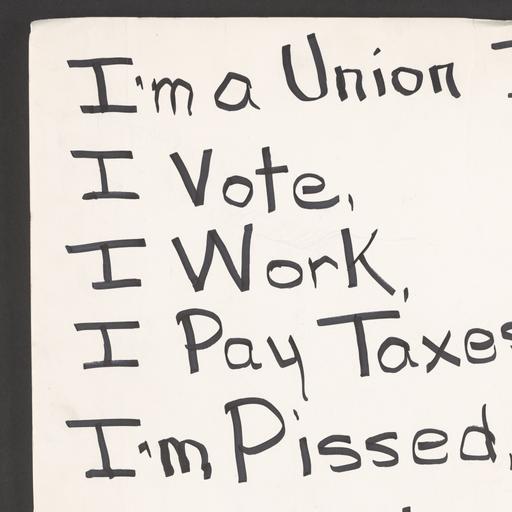 I'm a Union
I Vote,
I Work,
I Pay Taxes
I'm Pissed,